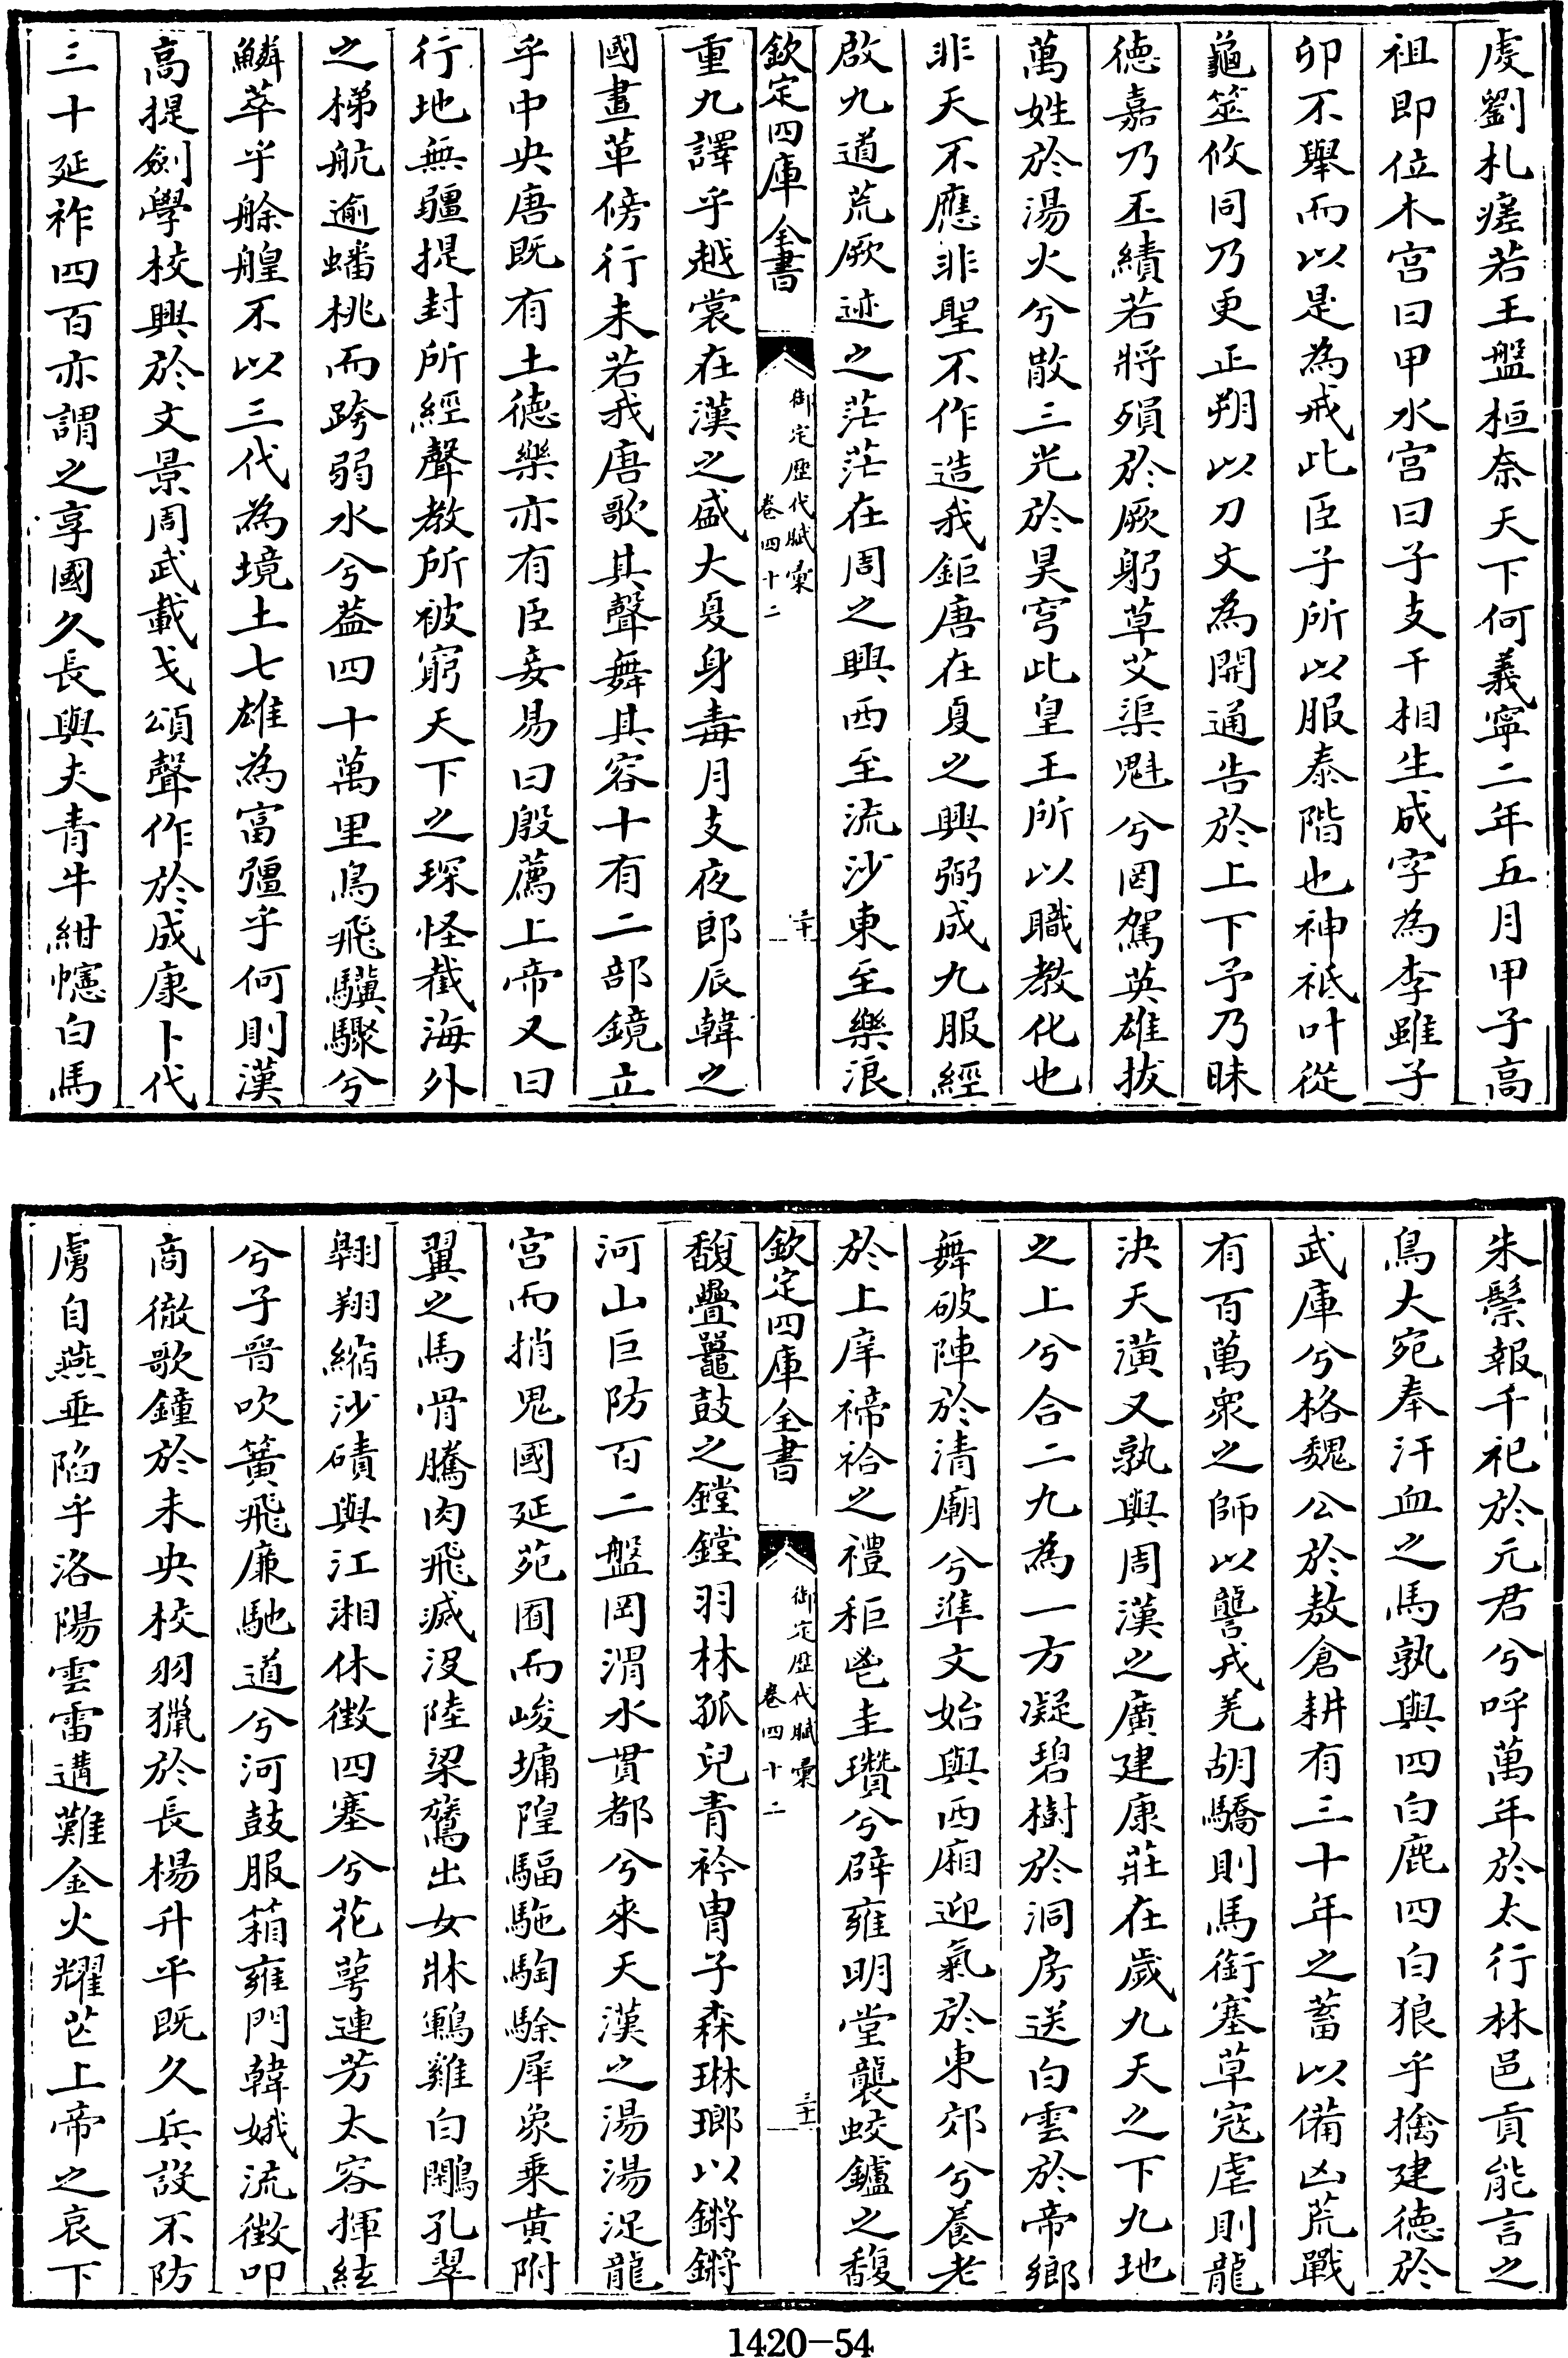 虔劉札瘥若王盤桓奈天下何義寧二年五月甲子高
祖即位木宫曰甲水宫曰子支干相生成字為李雖子
卯不舉而以是為戒此臣子所以服泰階也神祗叶從
龜筮攸同乃更正朔以刀文為開通告於上下予乃昧
徳嘉乃丕績若將殞於厥躬草艾渠魁兮罔駕英雄拔
萬姓於湯火兮散三光於昊穹此皇王所以職教化也
非天不應非聖不作造我鉅唐在夏之興弼成九服經
啟九道荒厥迹之茫茫在周之興西至流沙東至樂浪
欽定四庫全書
御定歴代賦彚
卷四十二
三十一
重九譯乎越裳在漢之盛大夏身毒月支夜郎辰韓之
國畫革傍行未若我唐歌其聲舞其容十有二部鏡立
乎中央唐既有土徳樂亦有臣妾易曰殷薦上帝又曰
行地無疆提封所經聲教所被窮天下之琛怪截海外
之梯航逾蟠桃而跨弱水兮葢四十萬里鳥飛驥驟兮
鱗萃乎艅艎不以三代為境土七雄為富彊乎何則漢
高提劍學校興於文景周武載戈頌聲作於成康卜代
三十延祚四百亦謂之享國久長與夫青牛紺幰白馬
朱鬃報千祀於元君兮呼萬年於太行林邑貢能言之
鳥大宛奉汗血之馬孰與四白鹿四白狼乎擒建徳於
武庫兮格魏公於敖倉耕有三十年之蓄以備凶荒戰
有百萬衆之師以讋戎羌胡驕則馬銜塞草寇虐則龍
決天潢又孰與周漢之廣建康莊在歲九天之下九地
之上兮合二九為一方凝碧樹於洞房送白雲於帝鄉
舞破陣於清廟兮準文始與西廂迎氣於東郊兮養老
於上庠禘祫之禮秬鬯圭瓚兮辟雍明堂襲蛟鑪之馥
欽定四庫全書
御定歴代賦彚
卷四十二
三十一
馥疊鼉鼓之鏜鏜羽林孤兒青衿胄子森琳瑯以鏘鏘
河山巨防百二盤岡渭水貫都兮来天漢之湯湯浞龍
宫而捎鬼國延苑囿而峻墉隍騙駞騊駼犀象乗黄附
翼之馬骨騰肉飛滅没陸梁鷟出女牀鷤雞白鷴孔翠
翺翔縮沙磧與江湘休徴四塞兮花蕚連芳太容揮絃
兮子晉吹簧飛廉馳道兮河鼓服箱雍門韓娥流徴叩
商徹歌鐘於未央校羽獵於長楊升平既久兵設不防
虜自燕垂陷乎洛陽雲雷遘難金火耀芒上帝之哀下
1420-54